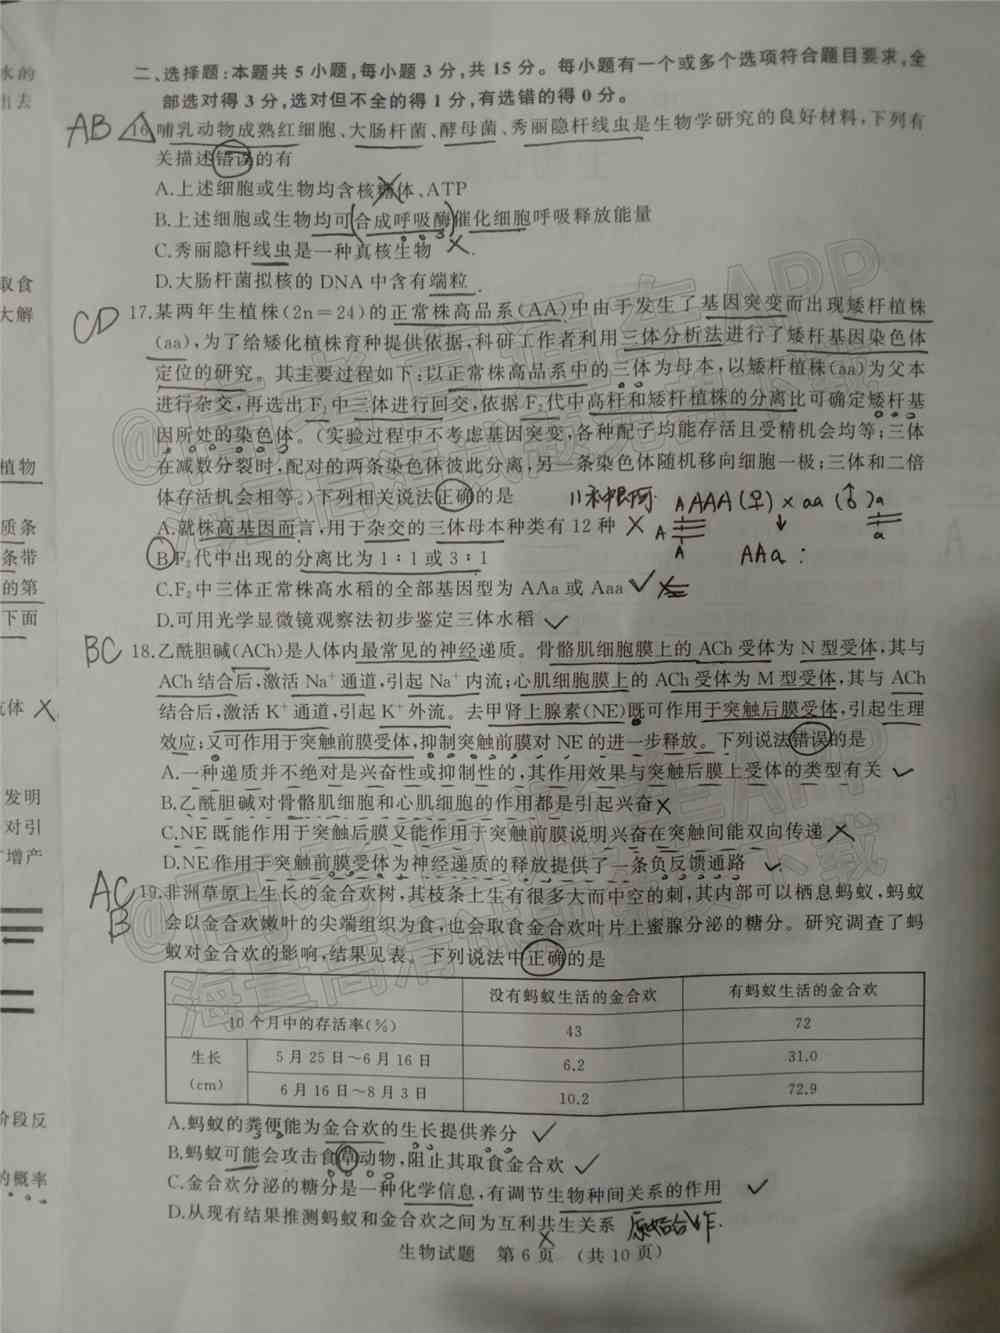 二、选择题:本题共5小题,每小题3分,共15分。每小题有一个或多个选项符合题目要求,全
部选对得3分,选对但不全的得1分,有选错的得0分。
AB
16.哺乳动物成熟红细胞、大肠杆菌、酵母菌、秀丽隐杆线虫是生物学研究的良好材料,下列有
关描述错误的有
A.上述细胞或生物均含核糖体、ATP
B.上述细胞或生物均可合成呼吸酶催化细胞呼吸释放能量
C.秀丽隐杆线虫是一种真核生物
D.大肠杆菌拟核的DNA中含有端粒
CD
17.某两年生植株(2n=24)的正常株高品系(AA)中由于发生了基因突变而出现矮杆植株
(aa),为了给矮化植株育种提供依据,科研工作者利用三体分析法进行了矮杆基因染色体
定位的研究。其主要过程如下:以正常株高品系中的三体为母本,以矮杆植株(aa)为父本
进行杂交,再选出F₁中三体进行回交,依据F₂代中高杆和矮杆植株的分离比可确定矮杆基
因所处的染色体。(实验过程中不考虑基因突变,各种配子均能存活且受精机会均等;三体
在减数分裂时,配对的两条染色体彼此分离,另一条染色体随机移向细胞一极;三体和二倍
体存活机会相等。)下列相关说法正确的是
A AAA(♀)×aa(♂)a
A.就株高基因而言,用于杂交的三体母本种类有12种
A
A
a
AAa:
B.F₂代中出现的分离比为1:1或3:1
C.F₂中三体正常株高水稻的全部基因型为AAa或Aaa
D.可用光学显微镜观察法初步鉴定三体水稻
BC
18.乙酰胆碱(ACh)是人体内最常见的神经递质。骨骼肌细胞膜上的ACh受体为N型受体,其与
ACh结合后,激活Na⁺通道,引起Na⁺内流;心肌细胞膜上的ACh受体为M型受体,其与ACh
结合后,激活K⁺通道,引起K⁺外流。去甲肾上腺素(NE)既可作用于突触后膜受体,引起生理
效应;又可作用于突触前膜受体,抑制突触前膜对NE的进一步释放。下列说法错误的是
A.一种递质并不绝对是兴奋性或抑制性的,其作用效果与突触后膜上受体的类型有关
B.乙酰胆碱对骨骼肌细胞和心肌细胞的作用都是引起兴奋
C.NE既能作用于突触后膜又能作用于突触前膜说明兴奋在突触间能双向传递
D.NE作用于突触前膜受体为神经递质的释放提供了一条负反馈通路
AC
B
19.非洲草原上生长的金合欢树,其枝条上生有很多大而中空的刺,其内部可以栖息蚂蚁,蚂蚁
会以金合欢嫩叶的尖端组织为食,也会取食金合欢叶片上蜜腺分泌的糖分。研究调查了蚂
蚁对金合欢的影响,结果见表。下列说法中正确的是
没有蚂蚁生活的金合欢 有蚂蚁生活的金合欢
10个月中的存活率(%) 43 72
生长 5月25日~6月16日 6.2 31.0
(cm) 6月16日~8月3日 10.2 72.9
A.蚂蚁的粪便能为金合欢的生长提供养分
B.蚂蚁可能会攻击食草动物,阻止其取食金合欢
C.金合欢分泌的糖分是一种化学信息,有调节生物种间关系的作用
D.从现有结果推测蚂蚁和金合欢之间为互利共生关系 原始合作.
生物试题 第6页 (共10页)
水的
出去
取食
大解
植物
质条
条带
的第
下面
抗体
发明
对引
增产
阶段反
的概率